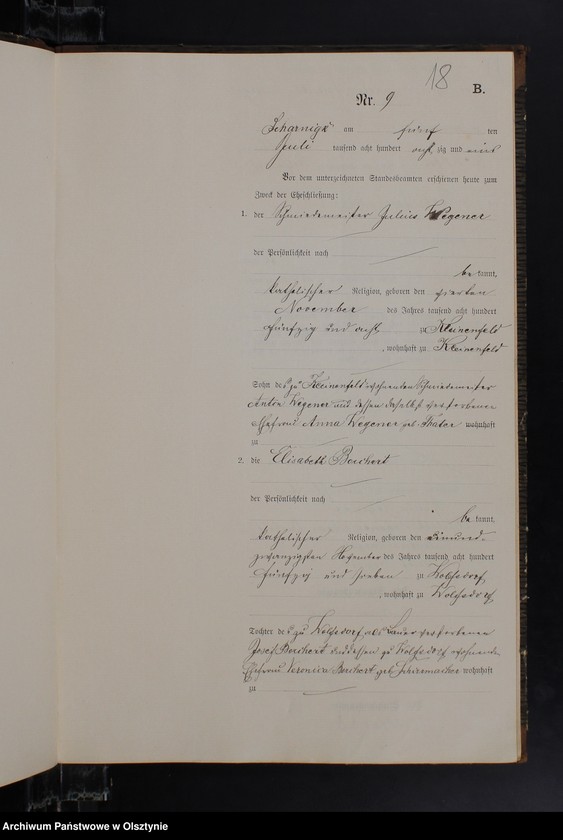 18
B.
Nr. 9
Scharnigk am fünf ten
Juli tausend acht hundert acht zig und eins
Vor dem unterzeichneten Standesbeamten erschienen heute zum
Zweck der Eheschließung:
1. der Schmiedemeister Julius Wegener
der Persönlichkeit nach
be kannt,
katholischer Religion, geboren den vierten
November des Jahres tausend acht hundert
fünfzig und acht zu Kleinenfeld
, wohnhaft zu Kleinenfeld
Sohn des zu Kleinenfeld wohnenden Schmiedemeister
Anton Wegener und dessen daselbst verstorbenen
Ehefrau Anna Wegener geb. Thater wohnhaft
zu
2. die Elisabeth Borchert
der Persönlichkeit nach
be kannt,
katholischer Religion, geboren den einund-
zwanzigsten November des Jahres tausend acht hundert
fünfzig und sieben zu Wolfsdorf
, wohnhaft zu Wolfsdorf
Tochter des zu Wolfsdorf als Bauer verstorbenen
Josef Borchert und dessen zu Wolfsdorf wohnende
Ehefrau Veronica Borchert geb. wohnhaft
zu
Archiwum Państwowe w Olsztynie